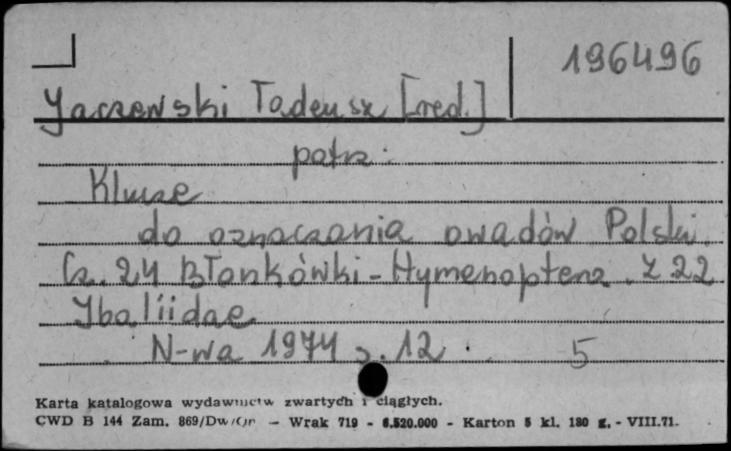 196496
Jaczewski Tadeusz [red.]
patrz:
Klucze
do oznaczania owadów Polski.
Cz. 24 Błonkówki - Hymenoptera. Z 22
Ibaliidae
N-wa 1974 s. 12. 5
Karta katalogowa wydawnictw zwartych i ciągłych.
CWD B 144 Zam. 869/Dw/Or — Wrak 719 - 6.520.000 - Karton 5 kl. 180 g. - VIII.71.